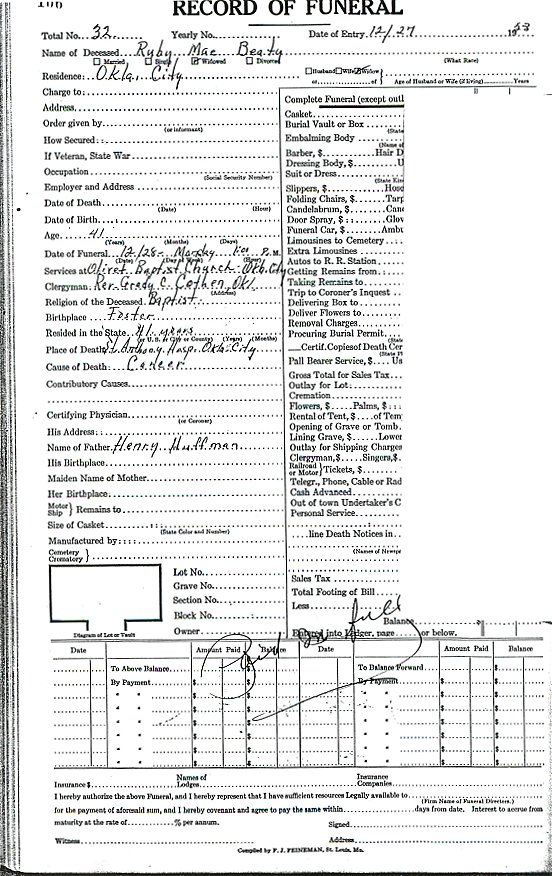 RECORD OF FUNERAL
Total No. 32 Yearly No. Date of Entry 12/27 19
Name of Deceased Ruby Mae Beaty
Married Single Widowed Divorced (What Race)
Residence: Okla. City Husband Wife Widow
Age of Husband or Wife (if living) Years
Charge to:
Address
Order given by
(or informant)
How Secured:
If Veteran, State War
Occupation
(Social Security Number)
Employer and Address
Date of Death
(Date) (Hour)
Date of Birth
Age 41
(Years) (Months) (Days)
Date of Funeral 12/28- Monday P.M.
(Date) (Day of Week) (Hour)
Services at Olivet Baptist Church Okla. City
Clergyman Rev. Grady C. Cothen Okl
(Address)
Religion of the Deceased Baptist
Birthplace Foster
Resided in the State 41 years
(or U. S. or City or County) (Years) (Months)
Place of Death St Anthony Hosp. Okla. City
Cause of Death Cancer
Contributory Causes
Certifying Physician
(or Coroner)
His Address
Name of Father Henry Huffman
His Birthplace
Maiden Name of Mother
Her Birthplace
Motor Ship } Remains to
Size of Casket
(State Color and Number)
Manufactured by
Cemetery Crematory }
Lot No.
Grave No.
Section No.
Block No.
Owner
Diagram of Lot or Vault
Complete Funeral (except outl
Casket
Burial Vault or Box
(State
Embalming Body
(Name of
Barber, $ Hair D
Dressing Body, $ U
Suit or Dress
(State Kin
Slippers, $ Hose
Folding Chairs, $ Tarp
Candelabrum, $ Cand
Door Spray, $ Glov
Funeral Car, $ Ambu
Limousines to Cemetery
Extra Limousines
Autos to R. R. Station
Getting Remains from
Taking Remains to
Trip to Coroner's Inquest
Delivering Box to
Deliver Flowers to
Removal Charges
Procuring Burial Permit
(State
Certif. Copies of Death Cer
(State F
Pall Bearer Service, $ Us
Gross Total for Sales Tax
Outlay for Lot:
Cremation
Flowers, $ Palms, $
Rental of Tent, $ of Tem
Opening of Grave or Tomb
Lining Grave, $ Lower
Outlay for Shipping Charges
Clergyman, $ Singers, $
Railroad or Motor } Tickets, $
Telegr., Phone, Cable or Rad
Cash Advanced
Out of town Undertaker's C
Personal Service
line Death Notices in
(Names of Newsp
Sales Tax
Total Footing of Bill
Less
Balance
Entered into Ledger, page or below.
Pd in full
Date Amount Paid Balance Date Amount Paid Balance
To Above Balance $ $ To Balance Forward $ $
By Payment $ $ By Payment $ $
Insurance $ Names of Lodges Insurance Companies
I hereby authorize the above Funeral, and I hereby represent that I have sufficient resources Legally available to
(Firm Name of Funeral Directors.)
for the payment of aforesaid sum, and I hereby covenant and agree to pay the same within days from date. Interest to accrue from
maturity at the rate of % per annum. Signed
Witness Address
Compiled by F. J. FEINEMAN, St. Louis, Mo.